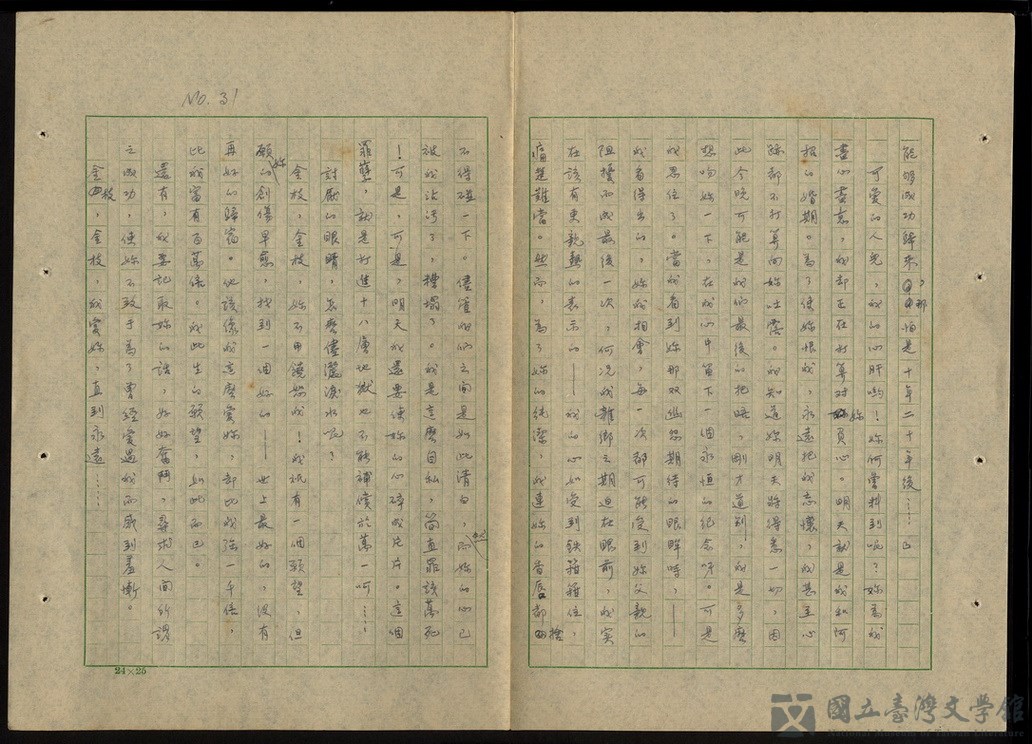 能够成功歸來,那怕是十年二十年後……」
可愛的人兒,我的心肝喲!妳何曾料到呢?妳為我
盡心盡意,我却正在打算對妳負心。明天就是我和阿
招的婚期。為了使妳恨我,永遠把我忘懷,我甚至
都不打算向妳吐露。我知道妳明天將得悉一切,因
此今晚可能是我們最後的把晤,剛才道別,我是多麼
想吻妳一下,在我心中留下一個永恒的紀念呀。可是
我忍住了。當我看到妳那双幽怨期待的眼眸時,——
我看得出的,妳我相會,每一次都可能受到妳父親的
阻擾而成最後一次,何況我離鄉之期迫在眼前,我实
在該有更親熱的表示的——我的心如受到鉄箍箍住,
痛楚難當。然而,為了妳的純潔,我連妳的香唇都捨
不得碰一下。儘管咱們之間是如此清白,然而妳的心已
被我沾污了,糟塌了。我是這麼自私,简直罪該萬死
!可是,可是,明天我還要使妳的心碎成片片。這個
罪孽,就是打進十八層地獄也不能補償於萬一呵……
討厭的眼睛,怎麼儘灑淚水呢?
金枝,金枝,妳不用饒恕我!我祇有一個願望,但
願妳的創傷早愈,找到一個好的——世上最好的,沒有
再好的歸宿。他該像我這麼愛妳,却比我强一千倍,
比我富有百萬倍。我此生的願望,如此而已。
還有,我要記取妳的話,好好奮鬥,尋求人間所謂
之成功,使妳不致于為了曾經愛過我而感到羞慚。
金枝,金枝,我愛妳,直到永遠……
No. 31
24×25
國立臺灣文學館
National Museum of Taiwan Literature